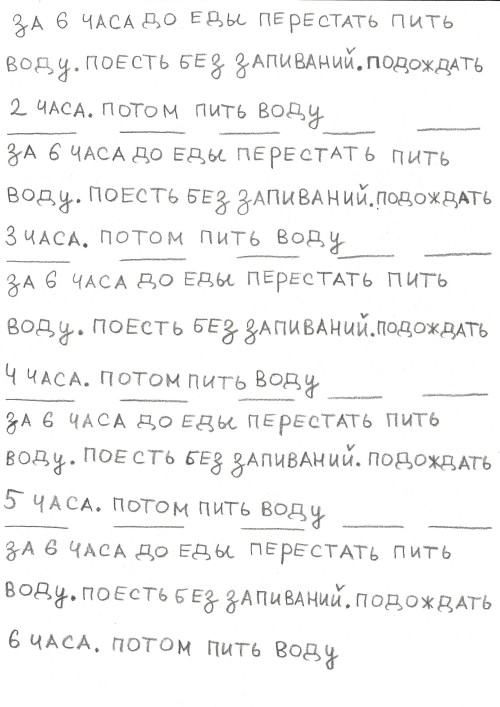 ЗА 6 ЧАСА ДО ЕДЫ ПЕРЕСТАТЬ ПИТЬ
ВОДУ. ПОЕСТЬ БЕЗ ЗАПИВАНИЙ. ПОДОЖДАТЬ
2 ЧАСА. ПОТОМ ПИТЬ ВОДУ
ЗА 6 ЧАСА ДО ЕДЫ ПЕРЕСТАТЬ ПИТЬ
ВОДУ. ПОЕСТЬ БЕЗ ЗАПИВАНИЙ. ПОДОЖДАТЬ
3 ЧАСА. ПОТОМ ПИТЬ ВОДУ
ЗА 6 ЧАСА ДО ЕДЫ ПЕРЕСТАТЬ ПИТЬ
ВОДУ. ПОЕСТЬ БЕЗ ЗАПИВАНИЙ. ПОДОЖДАТЬ
4 ЧАСА. ПОТОМ ПИТЬ ВОДУ
ЗА 6 ЧАСА ДО ЕДЫ ПЕРЕСТАТЬ ПИТЬ
ВОДУ. ПОЕСТЬ БЕЗ ЗАПИВАНИЙ. ПОДОЖДАТЬ
5 ЧАСА. ПОТОМ ПИТЬ ВОДУ
ЗА 6 ЧАСА ДО ЕДЫ ПЕРЕСТАТЬ ПИТЬ
ВОДУ. ПОЕСТЬ БЕЗ ЗАПИВАНИЙ. ПОДОЖДАТЬ
6 ЧАСА. ПОТОМ ПИТЬ ВОДУ